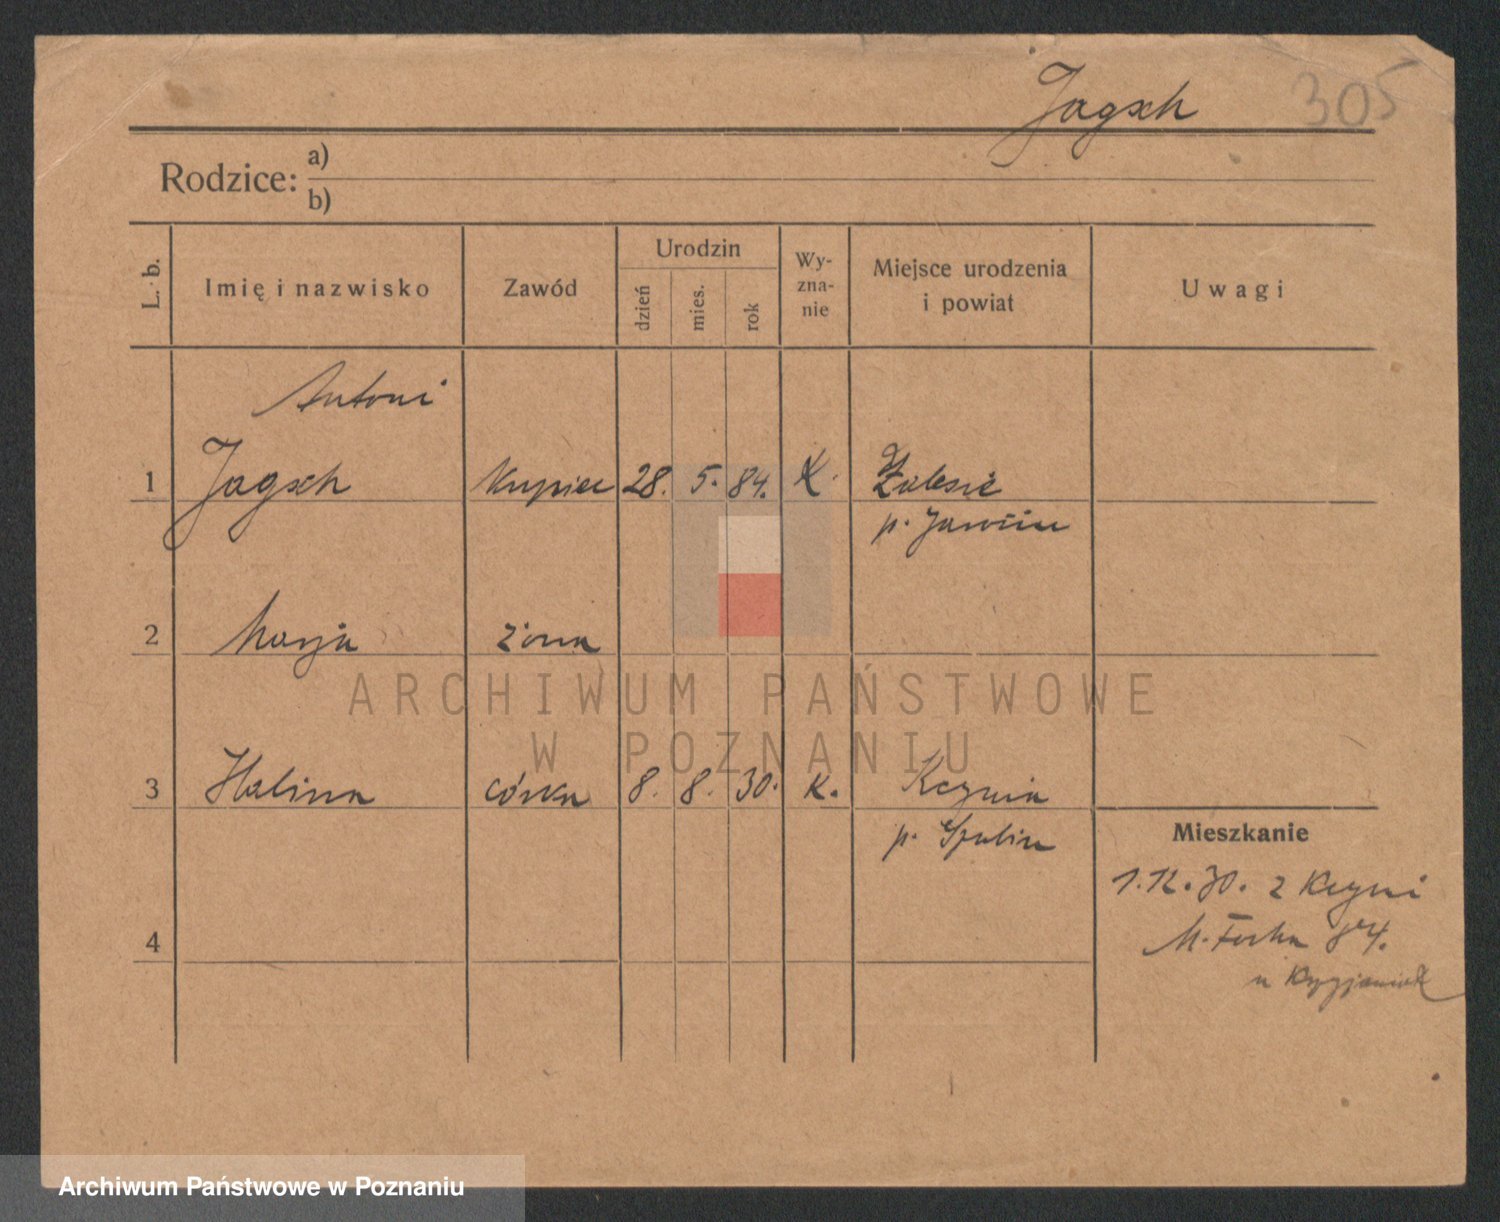 Jagsch 305
Rodzice: a)
b)
L. b. Imię i nazwisko Zawód Urodzin dzień mies. rok Wyznanie Miejsce urodzenia i powiat Uwagi
Antoni
1 Jagsch Kupiec 28. 5. 84. K. Zalesie
p. Jarocin
2 Marja żona
ARCHIWUM PAŃSTWOWE
W POZNANIU
3 Halina córka 8. 8. 30. K. Kcynia
p. Szubin
Mieszkanie
1.12.30. z Kcyni
M. Focha
4
u
Archiwum Państwowe w Poznaniu